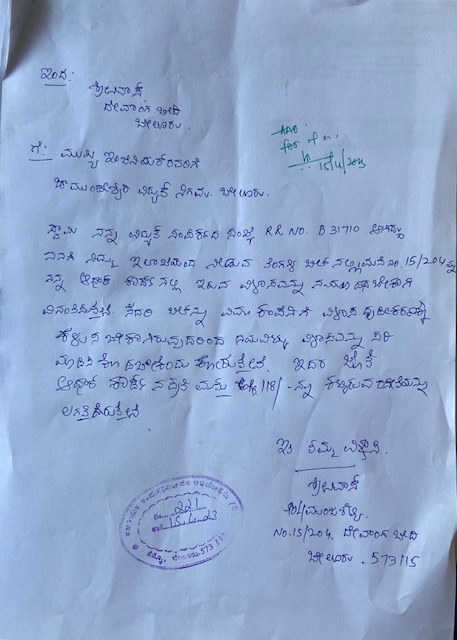 ಇಂದ:
ಶ್ರೀನಿವಾಸ್
ದೇವಾಂಗ ಬೀದಿ
ಬೇಲೂರು.
AAO
for n.
15/4/2023
ಗೆ: ಮುಖ್ಯ ಇಂಜಿನಿಯರ್‌ರವರಿಗೆ
ಚಾಮುಂಡೇಶ್ವರಿ ವಿದ್ಯುತ್ ನಿಗಮ. ಬೇಲೂರು.
ಸ್ವಾಮಿ ನನ್ನ ವಿದ್ಯುತ್ ಸಂಪರ್ಕದ ಸಂಖ್ಯೆ RR NO. B 31710 ಆಗಿದ್ದು
ನನಗೆ ನಿಮ್ಮ ಇಲಾಖೆಯಿಂದ ನೀಡುವ ತಿಂಗಳ ಬಿಲ್ ನಲ್ಲಿ ಮನೆ ನಂ. 15/204
ನನ್ನ ಆಧಾರ್ ಕಾರ್ಡ್‌ನಲ್ಲಿ ಇರುವ ವಿಳಾಸವನ್ನು
ವಿನಂತಿಸುತ್ತೇನೆ. ಸದರಿ ಬಿಲ್‌ನ್ನು ವಿಮಾ ಕಂಪನಿಗೆ ವಿಳಾಸ ದೃಢೀಕರಣಕ್ಕೆ
ಕಳುಹಿಸ ಬೇಕಾಗಿರುವುದರಿಂದ ದಯವಿಟ್ಟು ವಿಳಾಸವನ್ನು ಸರಿ
ಮಾಡಿಸಿ ಕೊಡಬೇಕೆಂದು ಕೋರುತ್ತೇನೆ. ಇದರ ಜೊತೆ
ಆಧಾರ್ ಕಾರ್ಡ್‌ನ ಪ್ರತಿ ಮತ್ತು 118/-ನ್ನು ಕಟ್ಟಿರುವ ರಶೀತಿಯನ್ನು
ಲಗತ್ತಿಸಿರುತ್ತೇನೆ
ಇತಿ ತಮ್ಮ ವಿಶ್ವಾಸಿ.
ಶ್ರೀನಿವಾಸ್
No.15/204. ದೇವಾಂಗ ಬೀದಿ
ಬೇಲೂರು. 573115
221
15.4.23
ಬೇಲೂರು-573 115